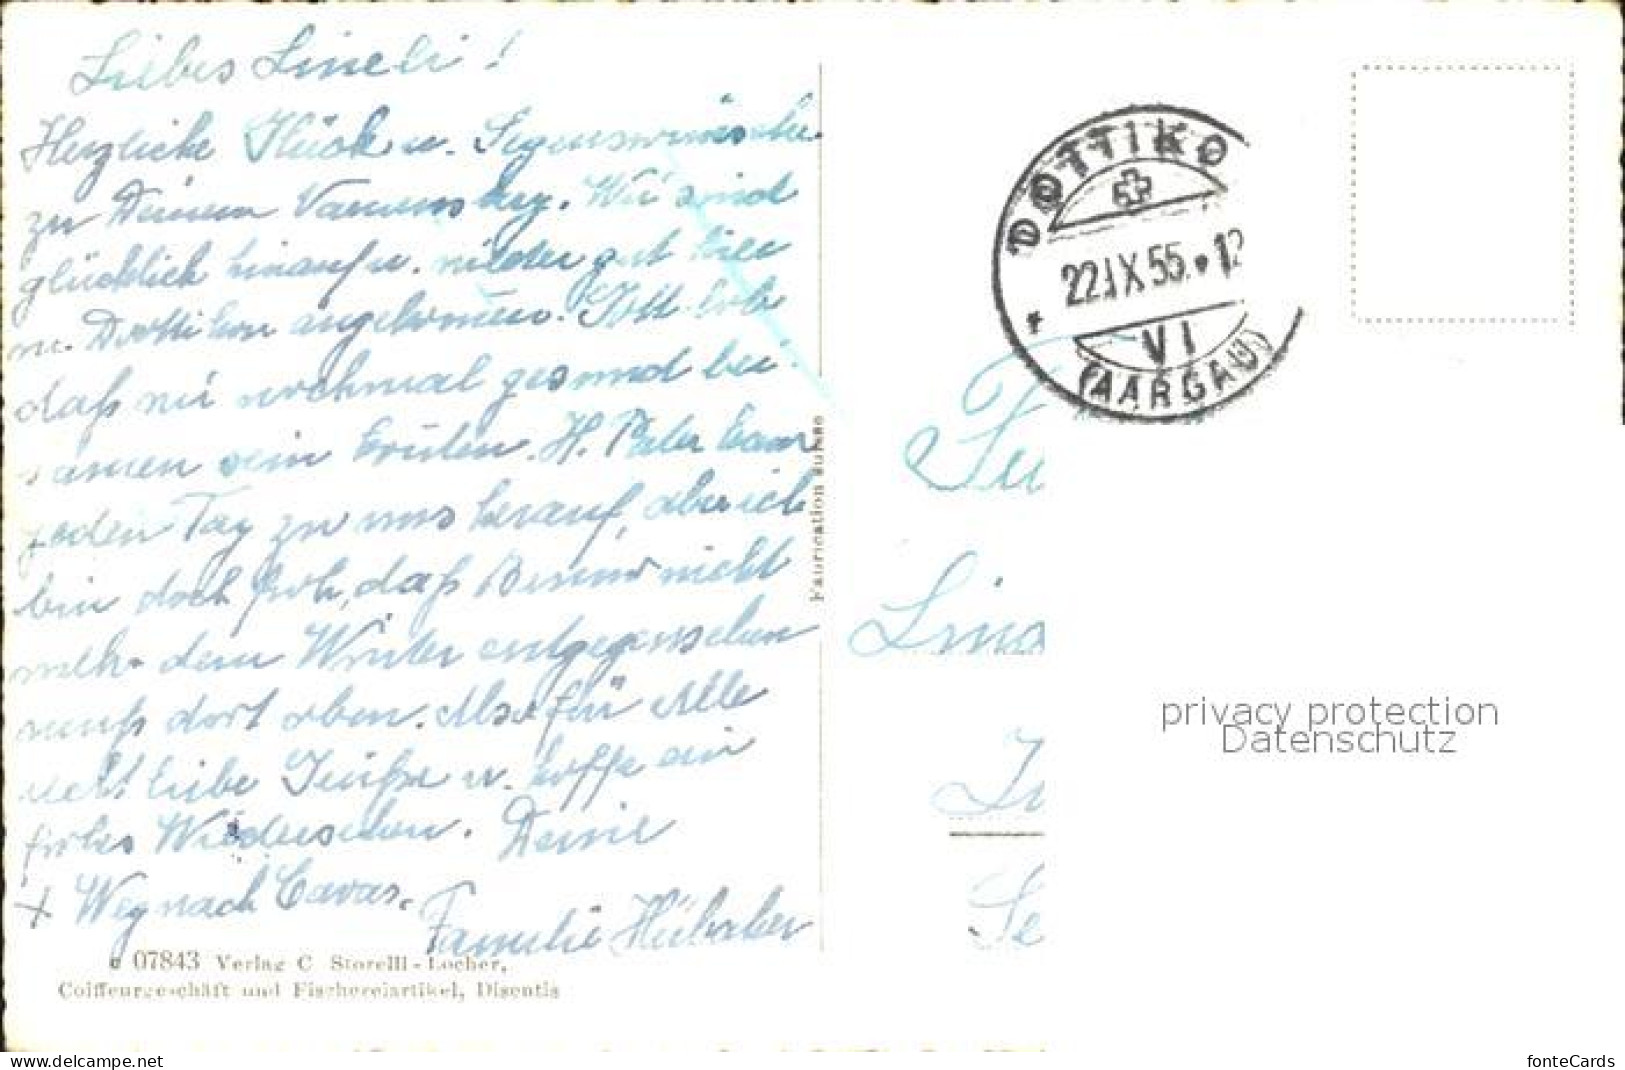 Liebes Lineli!
Herzliche Glück u. Segenswünsche
zu Deinem Namenstag. Wir sind
glücklich hinauf u. wieder gut hier
in Dottikon angekommen. Gott Lob
daß wir nochmal gesund bei-
samen sein konten. H. Pater kam
jeden Tag zu uns herauf, aber ich
bin doch froh, daß nicht
mehr dem Winter entgegensehen
muß dort oben. Also für Alle
recht liebe Grüße u. hoffe ein
frohes Wiedersehen. Deine
+ Weg nach Cavas. Familie Hübscher
07843 Verlag C Storelli-Locher,
Coiffeurgeschäft und Fischereiartikel, Disentis
Fabrication suisse
DOTTIKON
22.IX.55. 12
VI
(AARGAU)
Lina
privacy protection
Datenschutz
fonteCards